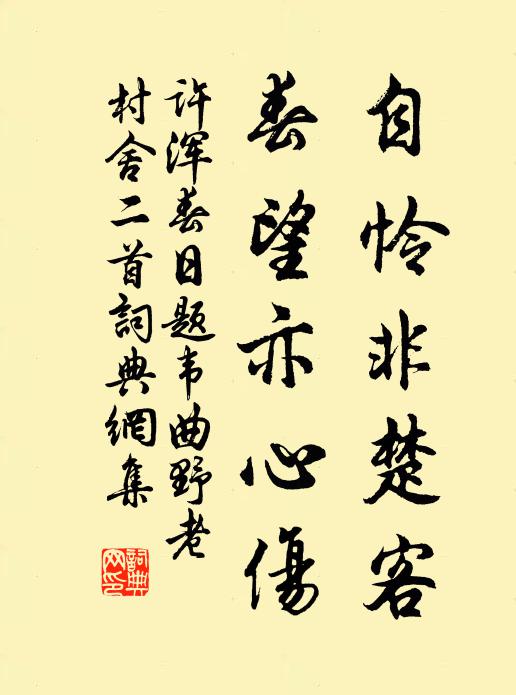 自怜非楚客
春望亦心傷
许浑春日题韦曲野老
村舍二首詞典網集
詞典
网印